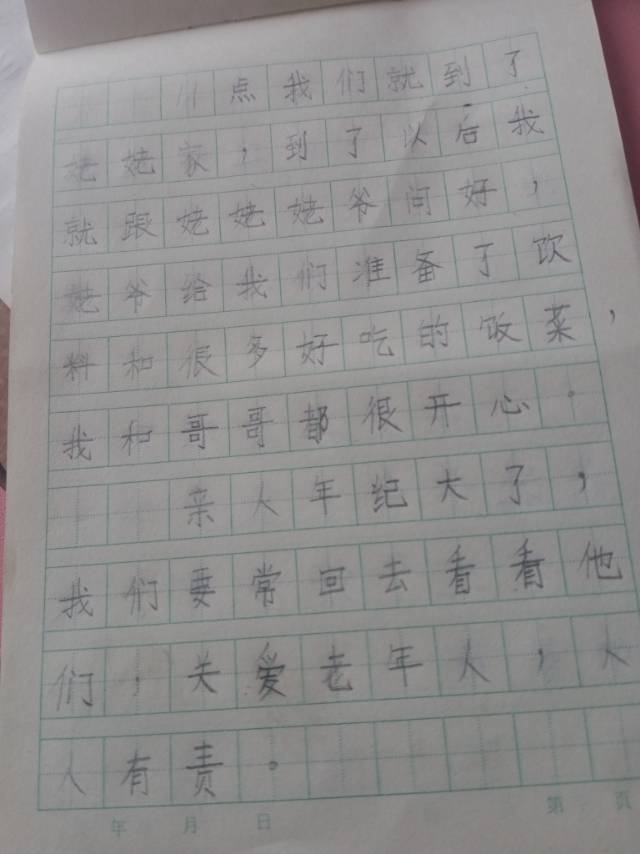 11点我们就到了
姥姥家，到了以后我
就跟姥姥姥爷问好，
姥爷给我们准备了饮
料和很多好吃的饭菜，
我和哥哥都很开心。
亲人年纪大了，
我们要常回去看看他
们，关爱老年人，人
人有责。
年 月 日 第 页